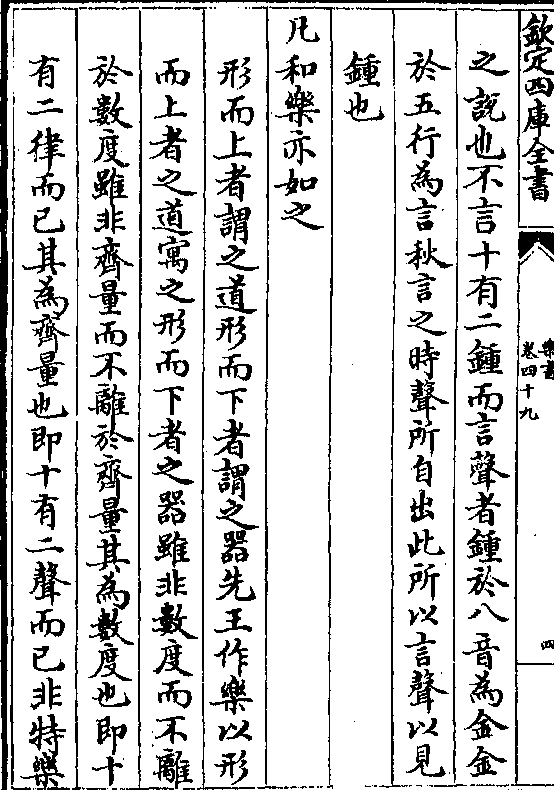 欽定四庫全書
樂書
卷四十九
四
之說也不言十有二鍾而言聲者鍾於八音為金金
於五行為言秋言之時聲所自出此所以言聲以見
鍾也
凡和樂亦如之
形而上者謂之道形而下者謂之器先王作樂以形
而上者之道寓之形而下者之器雖非數度而不離
於數度雖非齊量而不離於齊量其為數度也即十
有二律而已其為齊量也即十有二聲而已非特樂